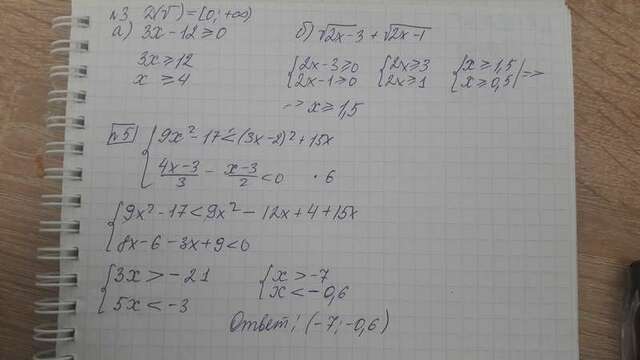 №3 D(√) = [0; +∞)
а) 3x-12≥0 б) √2x-3 + √2x-1
3x≥12 {2x-3≥0 {2x≥3 {x≥1,5 |=>
x≥4 2x-1≥0 2x≥1 x≥0,5
=> x≥1,5
№5 {9x²-17<(3x-2)²+15x
4x-3/3 - x-3/2 <0 ·6
{9x²-17<9x²-12x+4+15x
8x-6-3x+9<0
{3x>-21 {x>-7
5x<-3 x<-0,6
Ответ: (-7; -0,6)